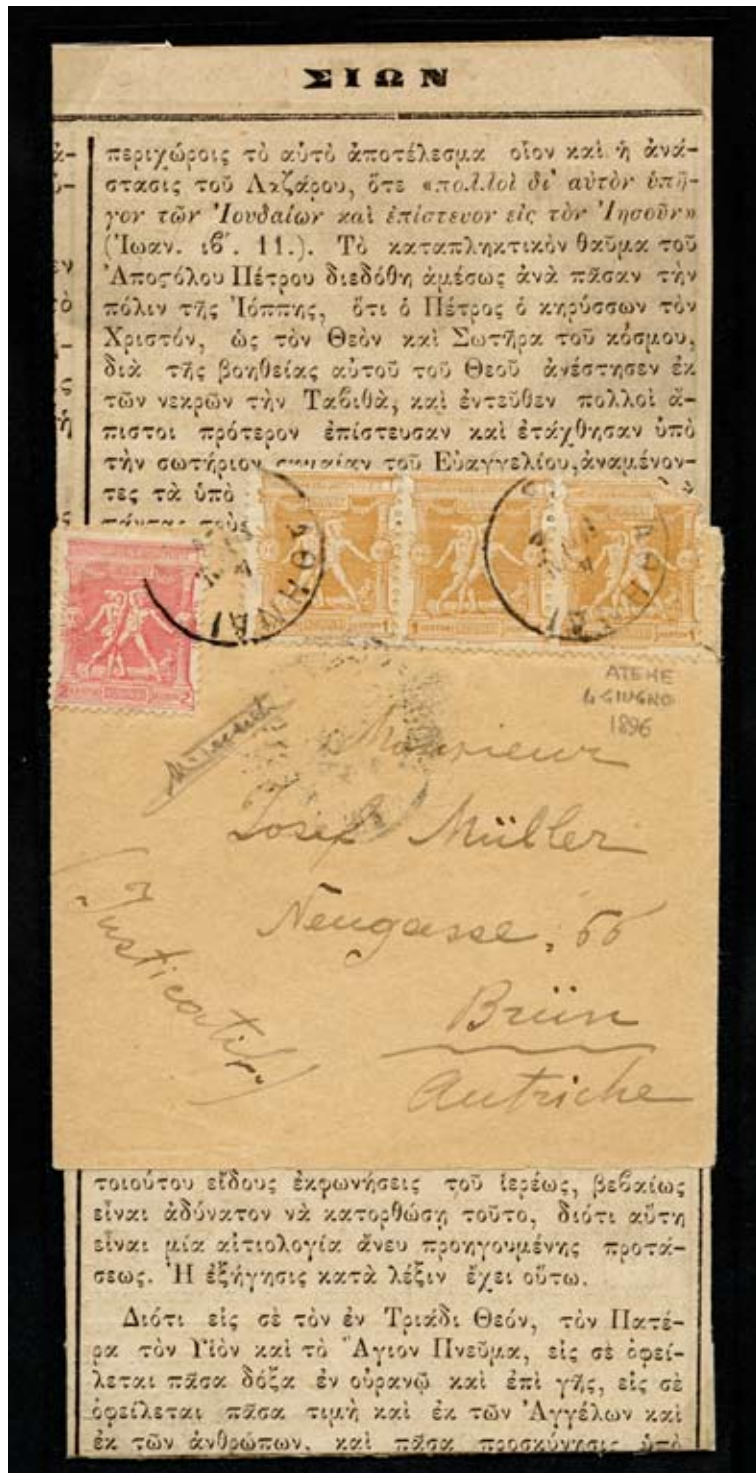 ΣΙΩΝ
περιχώροις τὸ αὐτὸ ἀποτέλεσμα οἷον καὶ ἡ ἀνά-
στασις τοῦ Λαζάρου, ὅτε «πολλοὶ δι' αὐτὸν ὑπῆ-
γον τῶν Ἰουδαίων καὶ ἐπίστευον εἰς τὸν Ἰησοῦν»
(Ἰωαν. ιϐ΄. 11.). Τὸ καταπληκτικὸν θαῦμα τοῦ
Ἀποστόλου Πέτρου διεδόθη ἀμέσως ἀνὰ πᾶσαν τὴν
πόλιν τῆς Ἰόππης, ὅτι ὁ Πέτρος ὁ κηρύσσων τὸν
Χριστόν, ὡς τὸν Θεὸν καὶ Σωτῆρα τοῦ κόσμου,
διὰ τῆς βοηθείας αὐτοῦ τοῦ Θεοῦ ἀνέστησεν ἐκ
τῶν νεκρῶν τὴν Ταβιθὰ, καὶ ἐντεῦθεν πολλοὶ ἄ-
πιστοι πρότερον ἐπίστευσαν καὶ ἐτάχθησαν ὑπὸ
τὴν σωτήριον σημαίαν τοῦ Εὐαγγελίου, ἀναμένον-
τες τὰ ὑπὸ
πάντας τοὺς
ΑΘΗΝΑΙ
ΑΘΗΝΑΙ
ATENE
4 GIUGNO
1896
Monsieur
Josef Müller
Neugasse, 66
Brünn
Autriche
(Justicatif)
τοιούτου εἴδους ἐκφωνήσεις τοῦ ἱερέως, βεβαίως
εἶναι ἀδύνατον νὰ κατορθώσῃ τοῦτο, διότι αὕτη
εἶναι μία αἰτιολογία ἄνευ προηγουμένης προτά-
σεως. Ἡ ἐξήγησις κατὰ λέξιν ἔχει οὕτω.
Διότι εἰς σὲ τὸν ἐν Τριάδι Θεόν, τὸν Πατέ-
ρα τὸν Υἱὸν καὶ τὸ Ἅγιον Πνεῦμα, εἰς σὲ ὀφεί-
λεται πᾶσα δόξα ἐν οὐρανῷ καὶ ἐπὶ γῆς, εἰς σὲ
ὀφείλεται πᾶσα τιμὴ καὶ ἐκ τῶν Ἀγγέλων καὶ
ἐκ τῶν ἀνθρώπων, καὶ πᾶσα προσκύνησις ὑπὸ